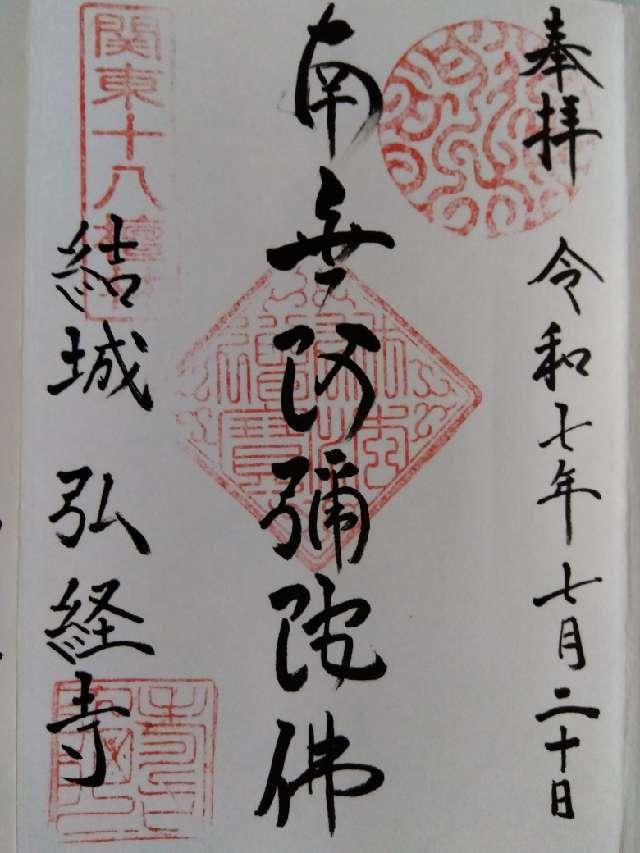 奉拝
令和七年七月二十日
南無阿彌陀佛
関東十八檀林
結城 弘経寺